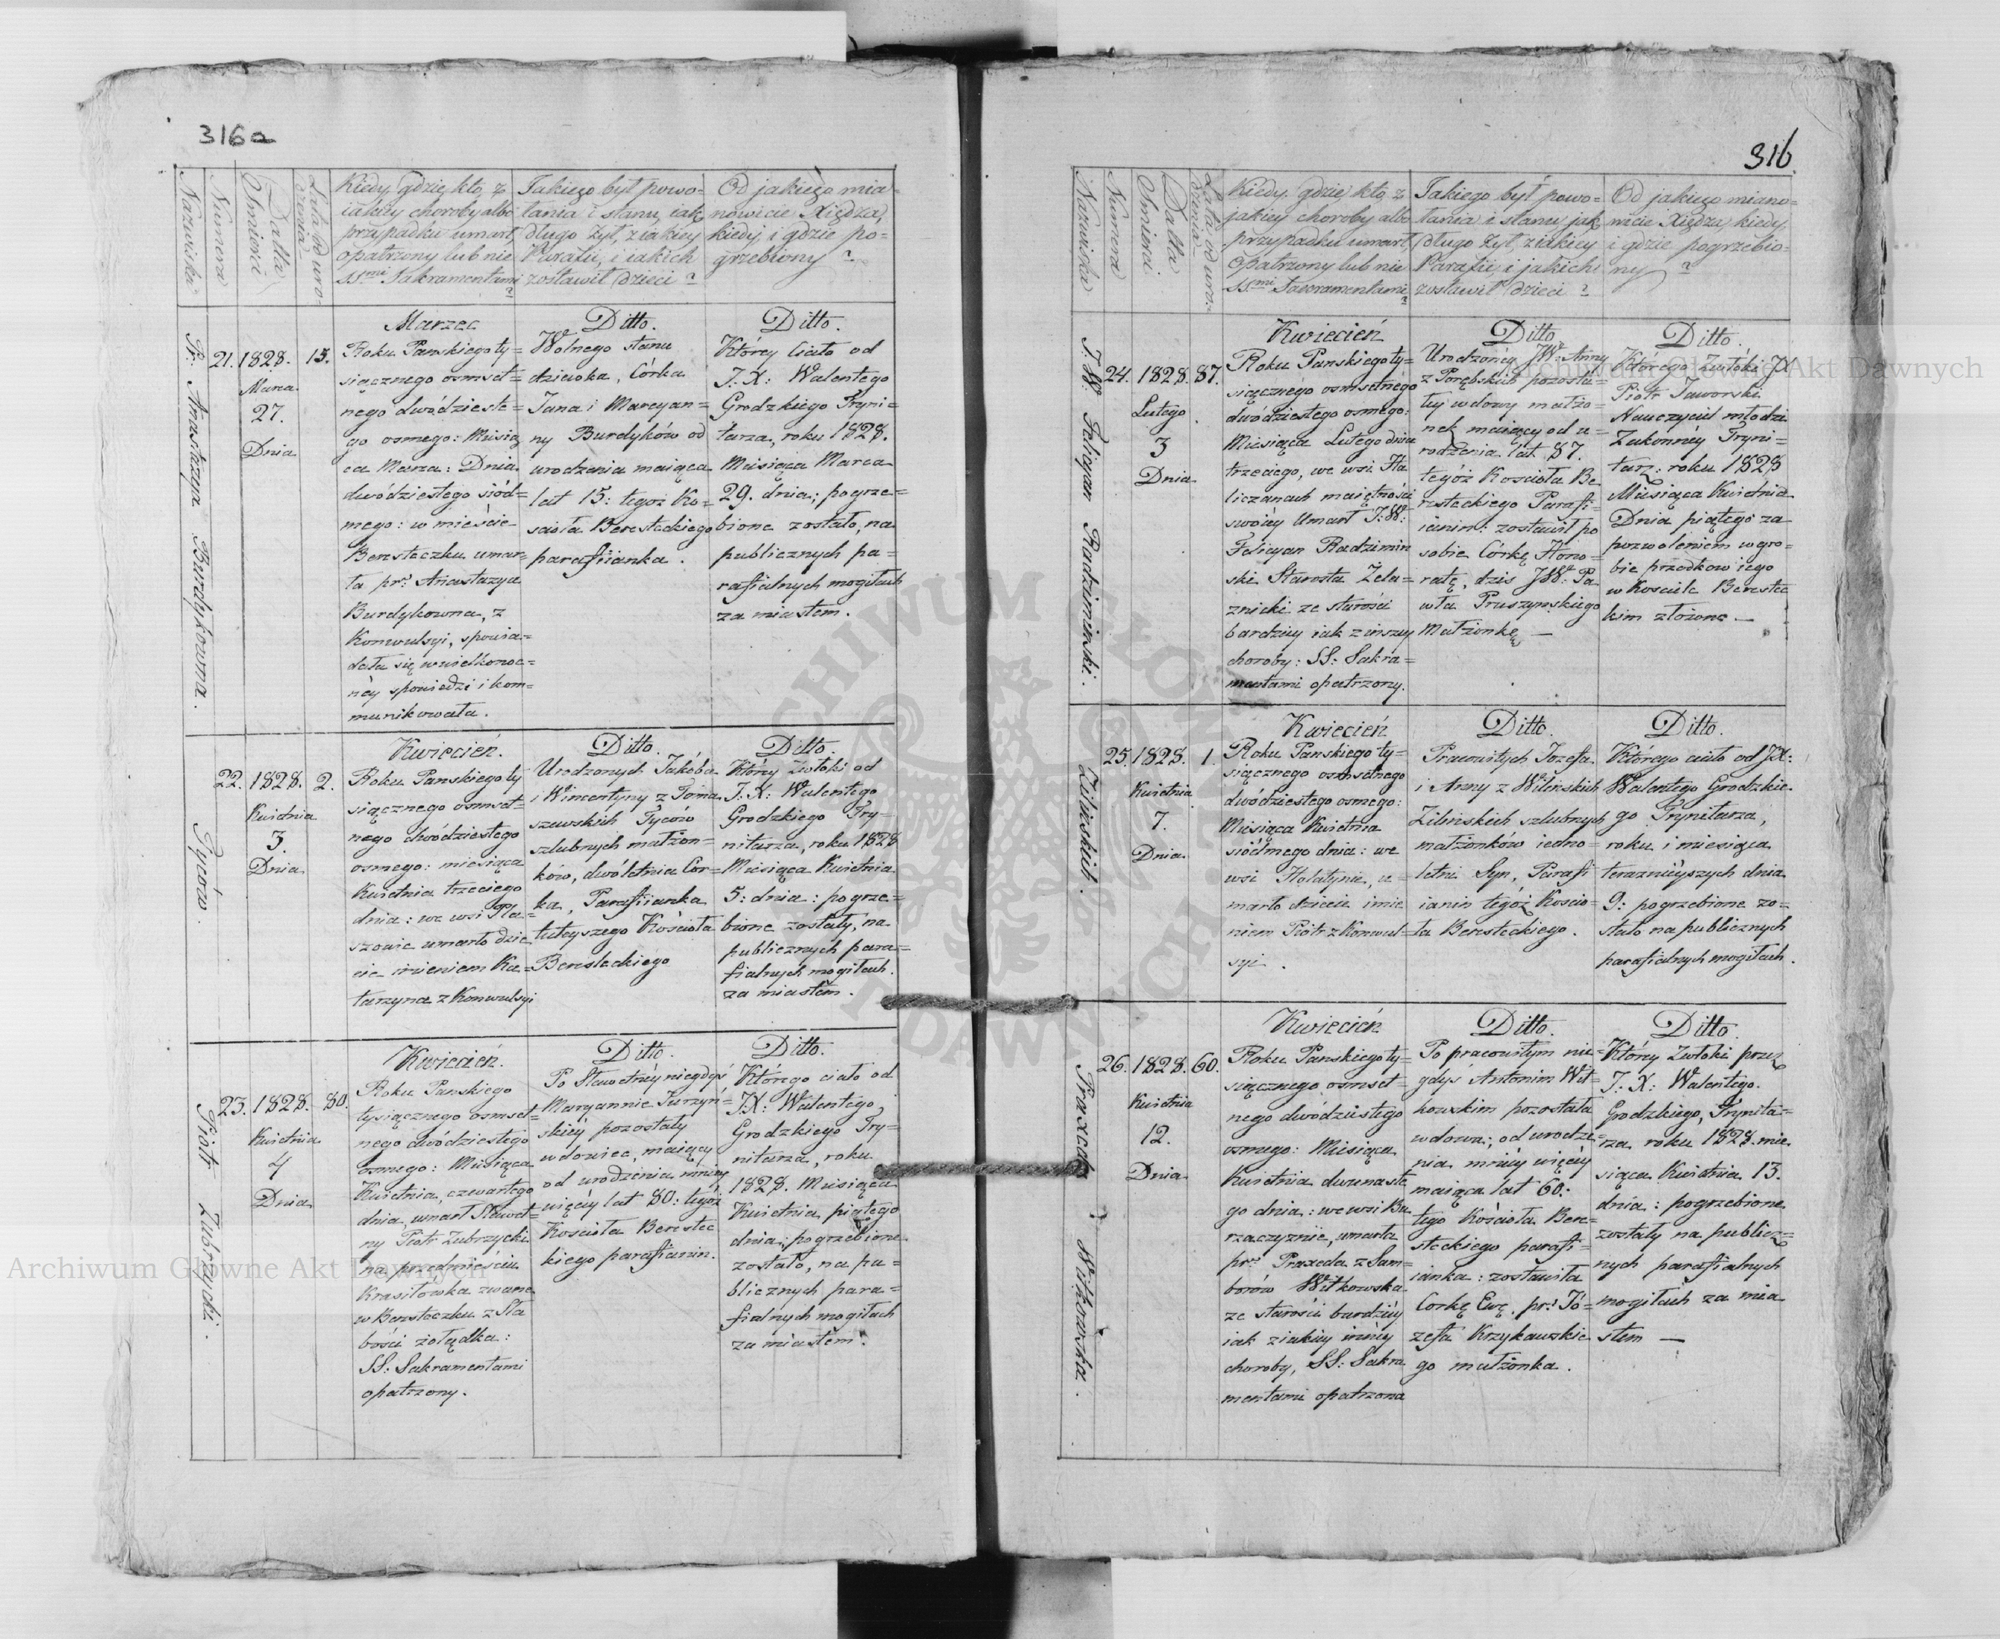 316a
Nazwiska
Numera
Datta Smierci
Lata od uro-
dzenia
Kiedy, gdzie, kto, z
iakiey choroby albo
przypadku umarł,
opatrzony lub nie
SS.mi Sakramentami?
Jakiego był powo-
łania i stanu, iak
długo żył, z iakiey
Parafii, i iakich
zostawił dzieci?
Od jakiego mia-
nowicie Xiędza,
kiedy i gdzie po-
grzebiony?
Pr: Anastazya Burdykowna.
21.
1828.
Marca
27.
Dnia
15.
Marzec
Roku Panskiego ty-
siącznego osmset-
nego dwódzieste-
go osmego: Miesią
ca Marca: Dnia
dwódziestego siód-
mego: w mieście
Beresteczku umar-
ła pr: Anastazya
Burdykowna, z
Konwulsyi, spowia-
dała się w wielkonoc-
néy spowiedzi i kom-
munikowała.
Ditto.
Wolnego stanu
dziewka, Córka
Jana i Maryan-
ny Burdyków od
urodzenia maiąca
lat 15: tegoż Ko-
scioła Beresteckiego
parafiianka.
Ditto.
Którey Ciało od
J. X: Walentego
Grodzkiego Tryni-
tarza, roku 1828.
Miesiąca Marca
29. dnia; pogrze-
bione zostało, na
publicznych pa-
rafialnych mogiłach
za miastem.
Tyców.
22.
1828.
Kwietnia
3.
Dnia
2.
Kwiecień.
Roku Panskiego ty
siącznego osmset-
nego dwódziestego
osmego: miesiąca
Kwietnia trzeciego
dnia: we wsi Pla-
szowie umarło dzie
cie imieniem Ka-
tarzyna z Konwulsyi
Ditto.
Urodzonych Jakóba
i Wincentyny z Toma
szewskich Tyców
szlubnych małżon-
ków, dwóletnia Cor-
ka, Parafiianka
tuteyszego Kościoła
Beresteckiego
Ditto.
Któréy Zwłoki od
J. X: Walentego
Grodzkiego Try-
nitarza, roku 1828
Miesiąca Kwietnia
5: dnia: pogrze-
bione zostały, na
publicznych para-
fialnych mogiłach.
za miastem.
Piotr Zubrzycki.
23.
1828.
Kwietnia
4
Dnia
80.
Kwiecień.
Roku Panskiego
tysiącznego osmset-
nego dwódziestego
osmego: Miesiąca
Kwietnia, czwartego
dnia, umarł Sławet-
ny Piotr Zubrzycki
na przedmieściu
Krasiłówka zwane
w Beresteczku z Sła
bości żołądka:
SS: Sakramentami
opatrzony.
Ditto.
Po Sławetnéy niegdyś
Maryannie Turzyń-
skiéy pozostały
wdowiec, maiący
od urodzenia mniéy
więcéy lat 80: tegoż
Kościoła Berestec
kiego parafianin.
Ditto.
Którego ciało od
JX: Walentego
Grodzkiego Try-
nitarza, roku
1828. Miesiąca
Kwietnia, piątego
dnia; pogrzebione
zostało, na pu-
blicznych para-
fialnych mogiłach
za miastem.
316.
Nazwiska
Numera
Datta
Smierci
Lata od uro-
dzenia
Kiedy, gdzie, kto, z
jakiey choroby albo
przypadku umarł,
Opatrzony lub nie
SS.mi Sacramentami?
Jakiego był powo-
łania i stanu jak
długo żył, z iakiey
Parafii i jakich
zostawił dzieci?
Od jakiego miano-
wicie Xiędza, kiedy
i gdzie pogrzebio-
ny?
J.W. Felicyan Radziminski.
24.
1828.
Lutego
3
Dnia
87.
Kwiecień
Roku Panskiego ty-
siącznego osmsetnego
dwódziestego osmego:
Miesiąca Lutego dnia
trzeciego, we wsi Ha
liczanach maiętności
swoiéy Umarł J:W:
Felicyan Radzimin
ski Starosta Zela-
znicki ze starości
bardziey iak z inszey
choroby: SS: Sakra-
mentami opatrzony.
Ditto
Urodzonéy JW: Anny
z Porębskich pozosta-
łey wdowy małżo-
nek maiący od u-
rodzenia lat 87.
tegóż Kościoła Be
resteckiego Parafi-
ianin: zostawił po
sobie Córkę Hono-
ratę, dziś JW: Pa
wła Pruszynskiego
Małżonkę —
Ditto.
Którego Zwłóki JX
Piotr Jaworski
Nauczyciel młodzi
Zakonnéy Tryni-
tarz: roku 1828
Miesiąca Kwietnia
Dnia piątego za
pozwoleniem w gro-
bie przodkow iego
w Kościele Berestec
kim złożone —
Zilinskich.
25.
1828.
Kwietnia
7.
Dnia
1.
Kwiecień
Roku Panskiego ty-
siącznego osmsetnego
dwódziestego osmego:
Miesiąca Kwietnia
siódmego dnia: we
wsi Hołatynie, u-
marło dziecie imie
niem Piotr z Konwul-
syi.
Ditto.
Prawowitych Jozefa
i Anny z Wilińskich
Zilińskich szlubnych
małżonków iedno-
letni Syn, Parafi
ianin tegóż Koscio-
ła Beresteckiego.
Ditto.
Którego ciało od JX:
Walentego Grodzkie-
go Trynitarza,
roku i miesiąca
teraznieyszych dnia
9: pogrzebione zo-
stało na publicznych
parafialnych mogiłach.
Praxeda Witkowska.
26.
1828.
Kwietnia
12.
Dnia
60.
Kwiecień
Roku Panskiego ty-
siącznego osmset-
nego dwódziestego
osmego: Miesiąca
Kwietnia dwunaste
go dnia: we wsi Bu
rzaczyznie, umarła
pr: Praxeda z Sam-
borów Witkowska
ze starości bardziéy
iak z iakiéy innéy
choroby, SS: Sakra
mentami opatrzona
Ditto.
Po pracowitym nie-
gdyś Antonim Wit-
kowskim pozostała
wdowa; od urodze-
nia mniéy więcéy
maiąca lat 60:
tego Kościoła Bere-
steckiego parafi-
ianka: zostawiła
Corkę Ewę, pr: Jó-
zefa Krzykawskie-
go małżonka.
Ditto.
Któréy Zwłoki przez
J. X: Walentego
Grodzkiego, Trynita-
rza roku 1828. mie-
siąca Kwietnia 13.
dnia: pogrzebione
zostały na publicz-
nych parafialnych
mogiłach za mia
stem —
Archiwum Główne Akt Dawnych
Archiwum Główne Akt Dawnych
ARCHIWUM GŁÓWNE AKT DAWNYCH